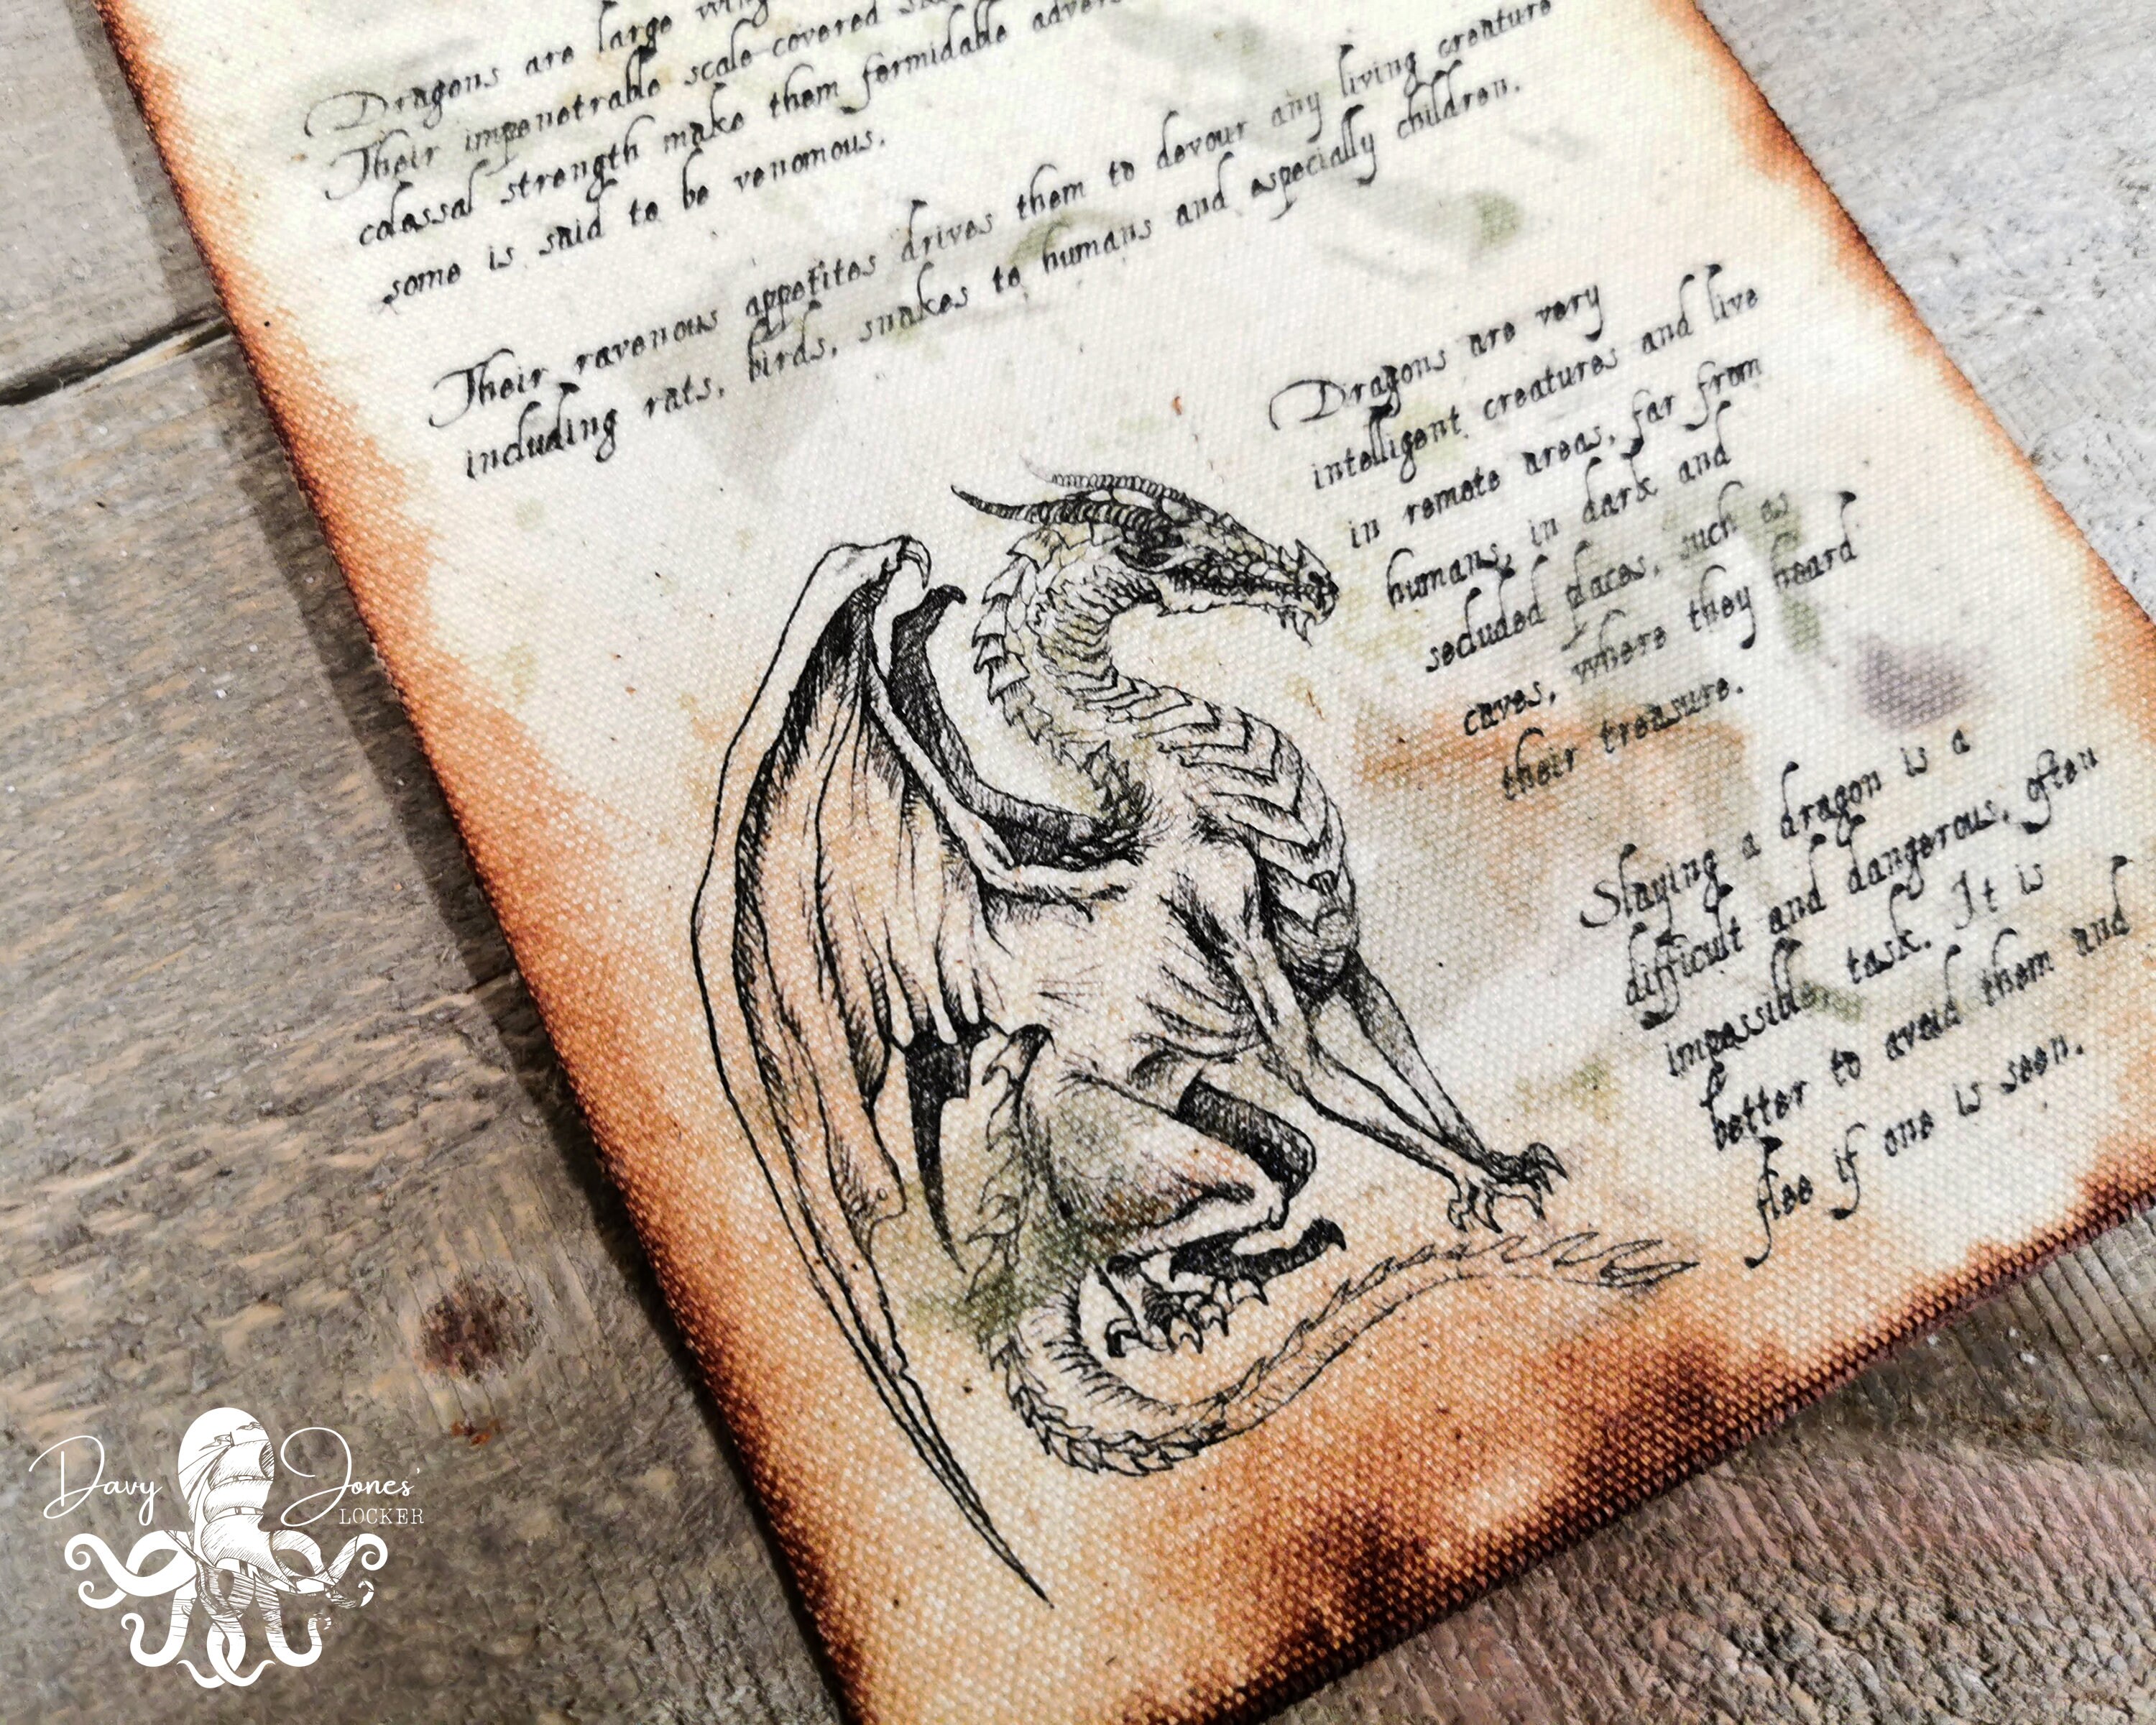 Dragons are large
Their impenetrable scale-covered
colossal strength make them formidable
some is said to be venomous.
Their ravenous appetites drives them to devour any living creature
including rats, birds, snakes to humans and especially children.
Dragons are very
intelligent creatures and live
in remote areas, far from
humans, in dark and
secluded places, such as
caves, where they hoard
their treasure.
Slaying a dragon is a
difficult and dangerous, often
impossible task. It is
better to avoid them and
flee if one is seen.
Davy Jones'
LOCKER